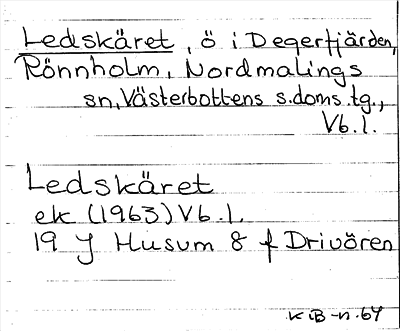 Ledskäret, ö i Degerfjärden,
Rönnholm, Nordmalings
sn, Västerbottens s.doms.tg.,
Vb.l.
Ledskäret
ek (1963) Vb.l.
19 J Husum 8 f Drivören
K iB-n.64